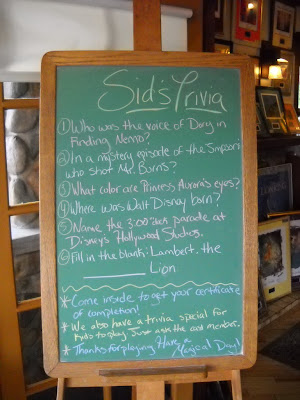 Sid's Trivia
① Who was the voice of Dory in
Finding Nemo?
② In a mystery episode of the Simpsons
who shot Mr. Burns?
③ What color are Princess Aurora's eyes?
④ Where was Walt Disney born?
⑤ Name the 3:00 parade at
Disney's Hollywood Studios.
⑥ Fill in the blank: Lambert, the
________ Lion
* Come inside to get your certificate
of completion!
* We also have a trivia special for
kids to play. Just ask the cast member.
* Thanks for playing. Have a
Magical Day!